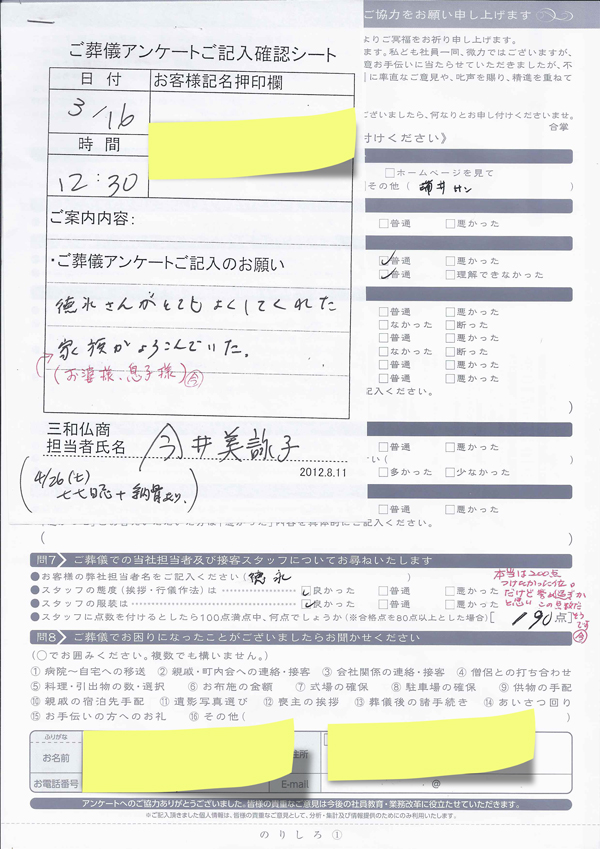 ご葬儀アンケートご記入確認シート
日付
お客様記名押印欄
3/16
時間
12:30
ご案内内容:
・ご葬儀アンケートご記入のお願い
徳永さんがとてもよくしてくれた
家族がよろこんでいた。
(お婆様、息子様)
三和仏商
担当者氏名
今井美詠子
2012.8.11
4/26(土)
七七日忌+納骨
ご協力をお願い申し上げます
よりご冥福をお祈り申し上げます。
ます。私ども社員一同、微力ではございますが、
意お手伝いに当たらせていただきましたが、不
に率直なご意見や、叱声を賜り、精進を重ねて
ございましたら、何なりとお申し付けくださいませ。
合掌
付けください》
□ホームページを見て
その他(
□普通 □悪かった
□普通 □悪かった
□普通 □理解できなかった
□普通 □悪かった
□なかった □断った
□普通 □悪かった
□なかった □断った
□普通 □悪かった
□普通 □悪かった
記入ください。
□普通 □悪かった
□多かった □少なかった
□普通 □悪かった
問7 ご葬儀での当社担当者及び接客スタッフについてお尋ねいたします
●お客様の弊社担当者名をご記入ください(徳永
●スタッフの態度(挨拶・行儀作法)は □良かった □普通 □悪かった
●スタッフの服装は □良かった □普通
●スタッフに点数を付けるとしたら100点満点中、何点でしょうか(※合格点を80点以上とした場合)[190点]
本当は200点
つけたかった位。
だけど
この点数だ
そうです
問8 ご葬儀でお困りになったことがございましたらお聞かせください
(○でお囲みください。複数でも構いません。)
①病院〜自宅への移送 ②親戚・町内会への連絡・接客 ③会社関係の連絡・接客 ④僧侶との打ち合わせ
⑤料理・引出物の数・選択 ⑥お布施の金額 ⑦式場の確保 ⑧駐車場の確保 ⑨供物の手配
⑩親戚の宿泊先手配 ⑪遺影写真選び ⑫喪主の挨拶 ⑬葬儀後の諸手続き ⑭あいさつ回り
⑮お手伝いの方へのお礼 ⑯その他( )
ふりがな
お名前
住所
お電話番号
E-mail
@
アンケートへのご協力ありがとうございました。皆様の貴重なご意見は今後の社員教育・業務改革に役立たせていただきます。
※ご記入頂きました個人情報は、皆様の貴重なご意見として、分析・集計及び情報提供のためにのみ利用いたします。
のりしろ①